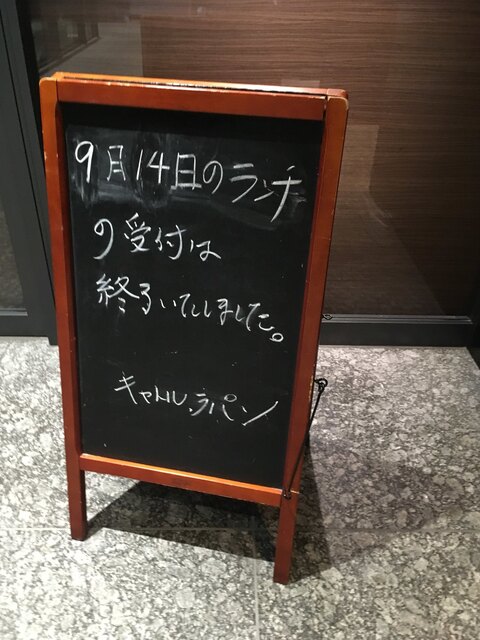 9月14日のランチ
の受付は
終了いたしました。
キャトル ラパン